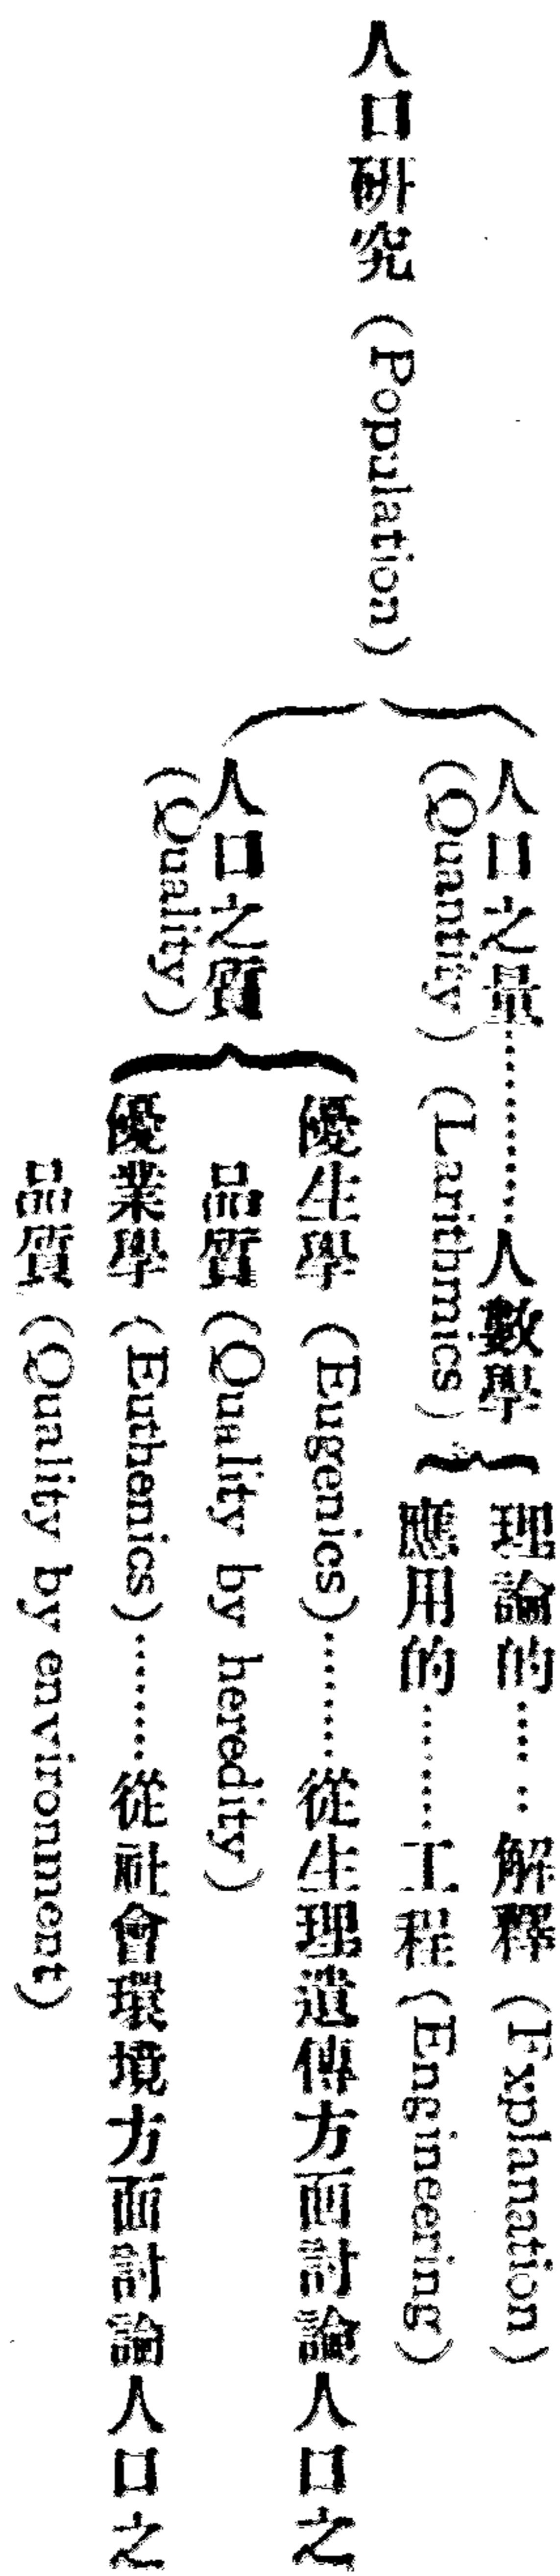 人口研究 (Population)
人口之量…………人數學
(Quantity) (Larithmics)
理論的……解釋 (Explanation)
應用的………工程 (Engineering)
人口之質
(Quality)
優生學 (Eugenics)………從生理遺傳方面討論人口之
品質 (Quality by heredity)
優業學 (Euthenics)………從社會環境方面討論人口之
品質 (Quality by environment)